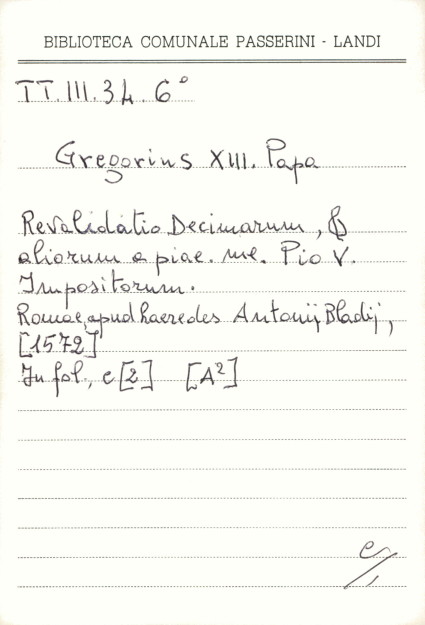 BIBLIOTECA COMUNALE PASSERINI - LANDI
TT.III.34. 6°
Gregorius XIII. Papa
Revalidatio Decimarum, &
aliorum a piae. me. Pio V.
Impositorum.
Romae, apud haeredes Antonij Bladij,
[1572]
In fol., c[2] [A²]